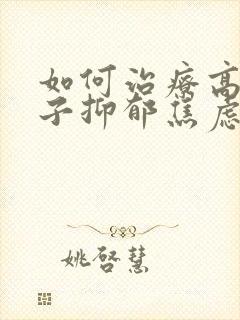 如何治療高
子抑郁焦慮
姚啓慧